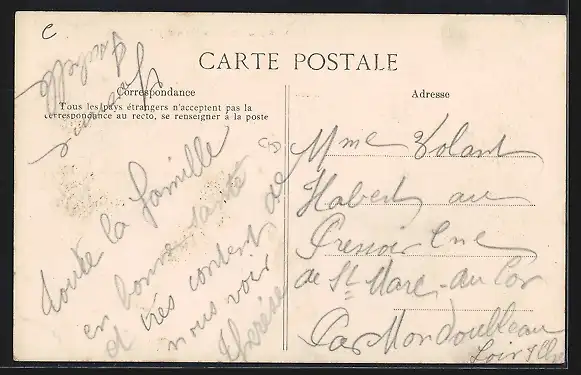 CARTE POSTALE
Correspondance
Tous les pays étrangers n'acceptent pas la
correspondance au recto, se renseigner à la poste
Adresse
toute la famille
en bonne santé
très content de
nous voir
Mme Volant
Habert au
Pressoir Cne
de St Marc-du-Cor
Par Mondoubleau
Loir